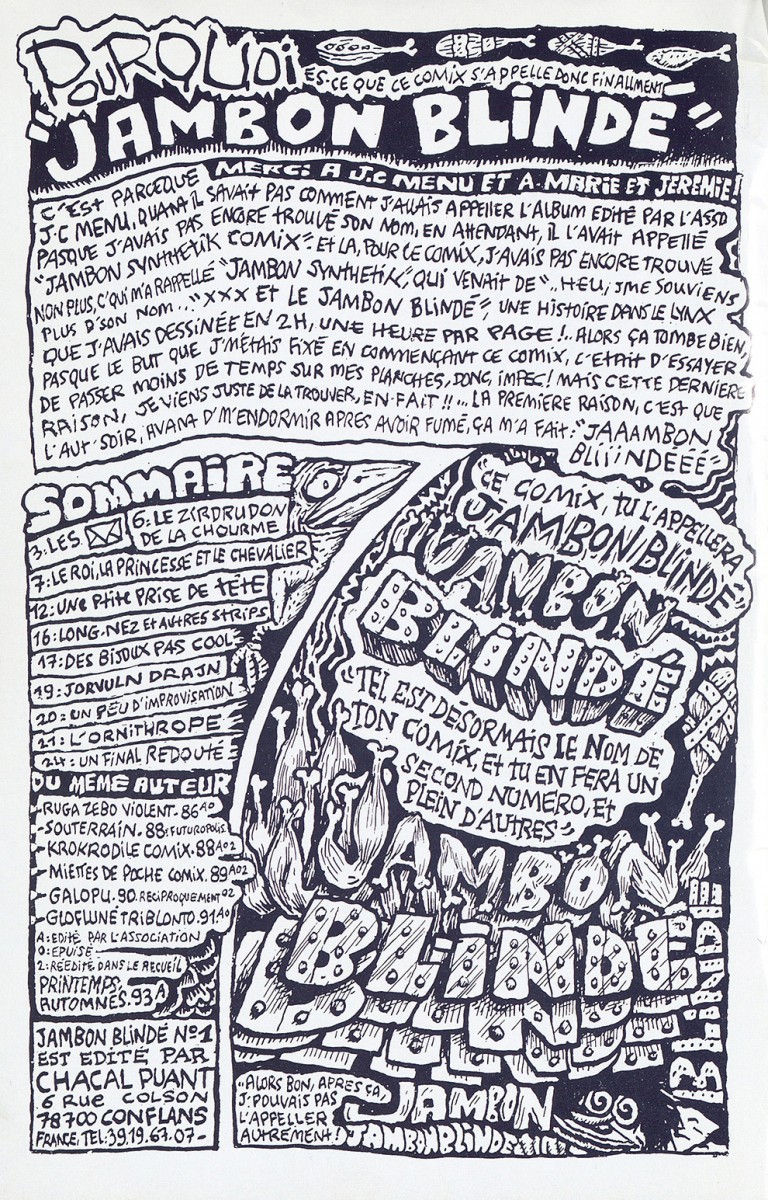 POURQUOI
ES-CE QUE CE COMIX S'APPELLE DONC FINALLMENT
"JAMBON BLINDÉ"
MERCI A J.C MENU ET A MARIE ET JEREMIE!
C'EST PARCEQUE
J.C MENU, QUAND IL SAVAIT PAS COMMENT J'ALLAIS APPELLER L'ALBUM EDITÉ PAR L'ASSO
PASQUE J'AVAIS PAS ENCORE TROUVÉ SON NOM, EN ATTENDANT, IL L'AVAIT APPELLÉ
"JAMBON SYNTHETIK COMIX" ET LA, POUR CE COMIX, J'AVAIS PAS ENCORE TROUVÉ
NON PLUS, C'QUI M'A RAPPELLÉ "JAMBON SYNTHETIK", QUI VENAIT DE "..HEU, JME SOUVIENS
PLUS D'SON NOM..."XXX ET LE JAMBON BLINDÉ", UNE HISTOIRE DANS LE LYNX
QUE J'AVAIS DESSINÉE EN 2H, UNE HEURE PAR PAGE!.. ALORS ÇA TOMBE BIEN,
PASQUE LE BUT QUE J'M'ÉTAIS FIXÉ EN COMMENÇANT CE COMIX, C'ETAIT D'ESSAYER
DE PASSER MOINS DE TEMPS SUR MES PLANCHES, DONC, IMPEC! MAIS CETTE DERNIERE
RAISON, JE VIENS JUSTE DE LA TROUVER, EN FAIT!!... LA PREMIERE RAISON, C'EST QUE
L'AUT'SOIR, AVANT D'M'ENDORMIR APRES AVOIR FUMÉ, ÇA M'A FAIT: "JAAAMBON
BLIIINDÉÉÉ"
SOMMAIRE
3: LES
6: LE ZIRDRUDON
DE LA CHOURME
7: LE ROI, LA PRINCESSE ET LE CHEVALIER
12: UNE PTITE PRISE DE TÊTE
16: LONG-NEZ ET AUTRES STRIPS
17: DES BIJOUX PAS COOL
19: JORVULN DRAJN
20: UN PEU D'IMPROVISATION
21: L'ORNITHROPE
24: UN FINAL REDOUTÉ
DU MEME AUTEUR
-RUGA ZEBO VIOLENT. 86 A0
-SOUTERRAIN. 88: FUTUROPOLIS
-KROKRODILE COMIX. 88 A02
-MIETTES DE POCHE COMIX. 89 A02
-GALOPU. 90. RECIPROQUEMENT 02
-GLOFUUNÉ TRIBLONTO. 91 A0
A: EDITÉ PAR L'ASSOCIATION
0: EPUISÉ
2: RÉEDITÉ DANS LE RECUEIL
PRINTEMPS,
AUTOMNES. 93 A
JAMBON BLINDÉ Nº1
EST EDITÉ PAR
CHACAL PUANT
6 RUE COLSON
78700 CONFLANS
FRANCE, TEL: 39.19.67.07-
"CE COMIX, TU L'APPELLERA
JAMBON BLINDÉ"
JAMBON
BLINDÉ
"TEL EST DÉSORMAIS LE NOM DE
TON COMIX, ET TU EN FERA UN
SECOND NUMÉRO, ET
PLEIN D'AUTRES"
JAMBON
BLINDÉ
BLINDÉ
"ALORS BON, APRES ÇA,
J'POUVAIS PAS
L'APPELLER
AUTREMENT!
JAMBON
JAMBONBLINDÉ